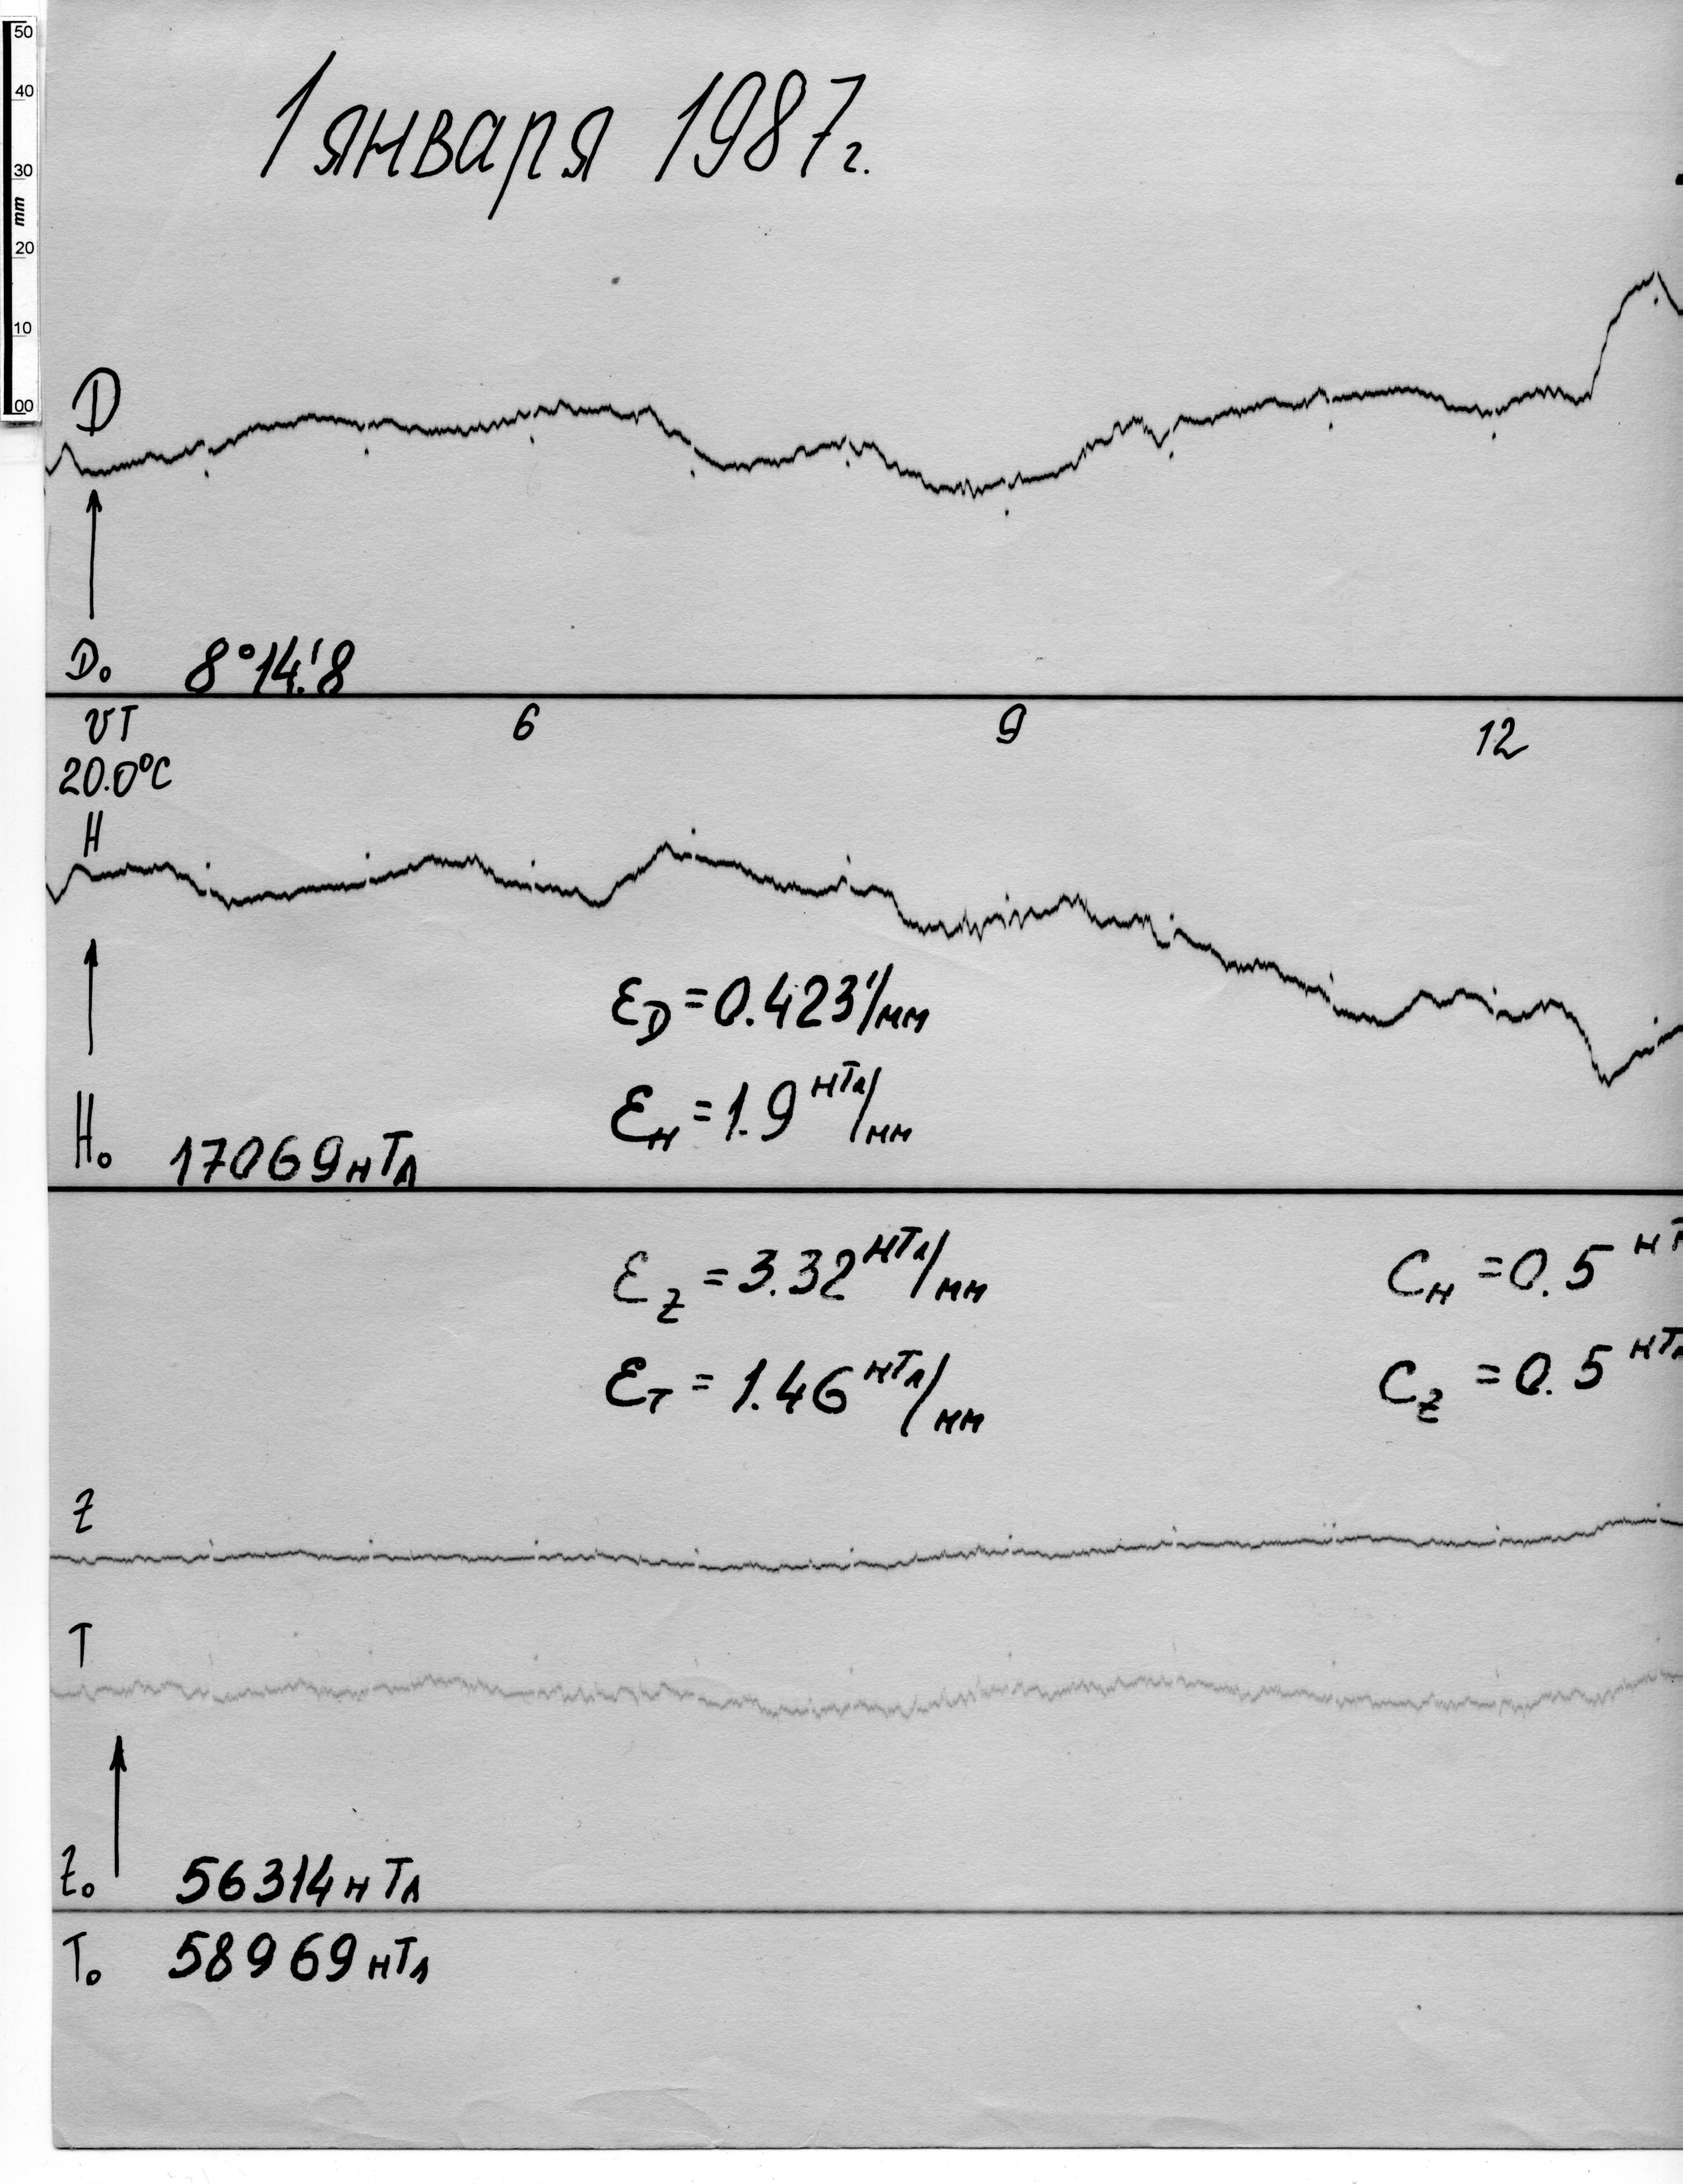 50
40
30
mm
20
10
00
1 января 1987г.
D
D₀ 8°14.'8
UT 6 9 12
20.0°C
H
ε_D = 0.423'/мм
ε_H = 1.9 нТл/мм
H₀ 17069 нТл
ε_Z = 3.32 нТл/мм
C_H = 0.5
ε_T = 1.46 нТл/мм
C_Z = 0.5 нТл
Z
T
Z₀ 56314 нТл
T₀ 58969 нТл